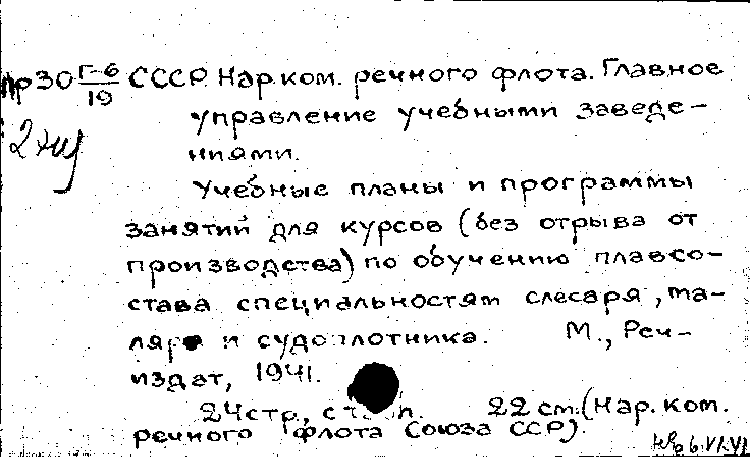 Пр30 Г-6/19 СССР. Нар.ком. речного флота. Главное
управление учебными заведе-
ниями.
2 экз
Учебные планы и программы
занятий для курсов (без отрыва от
производства) по обучению плавсо-
става специальностям слесаря, ма-
ляра и судоплотника. М., Реч-
издат, 1941.
24 стр., с 22 см. (Нар. ком.
речного флота Союза ССР).